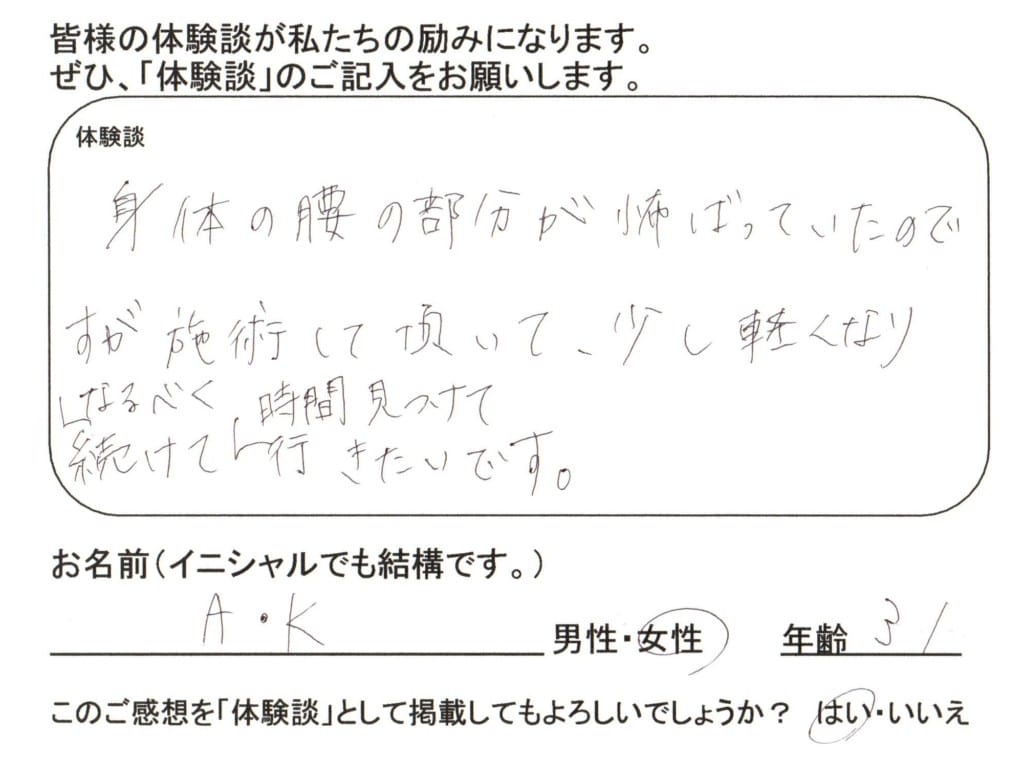 皆様の体験談が私たちの励みになります。
ぜひ、「体験談」のご記入をお願いします。
体験談
身体の腰の部分が怖ばっていたので
すが施術して頂いて、少し軽くなり
なるべく、時間見つけて
続けて行きたいです。
お名前(イニシャルでも結構です。)
A・K 男性・女性 年齢 31
このご感想を「体験談」として掲載してもよろしいでしょうか? はい・いいえ